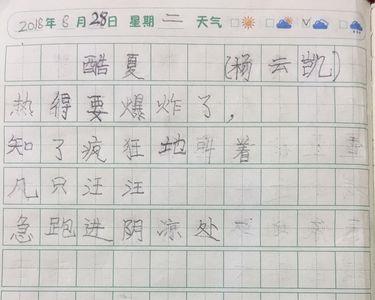 2018年8月28日 星期二 天气
酷夏 (杨云凯)
热得要爆炸了,
知了疯狂地叫着
几只汪汪
急跑进阴凉处